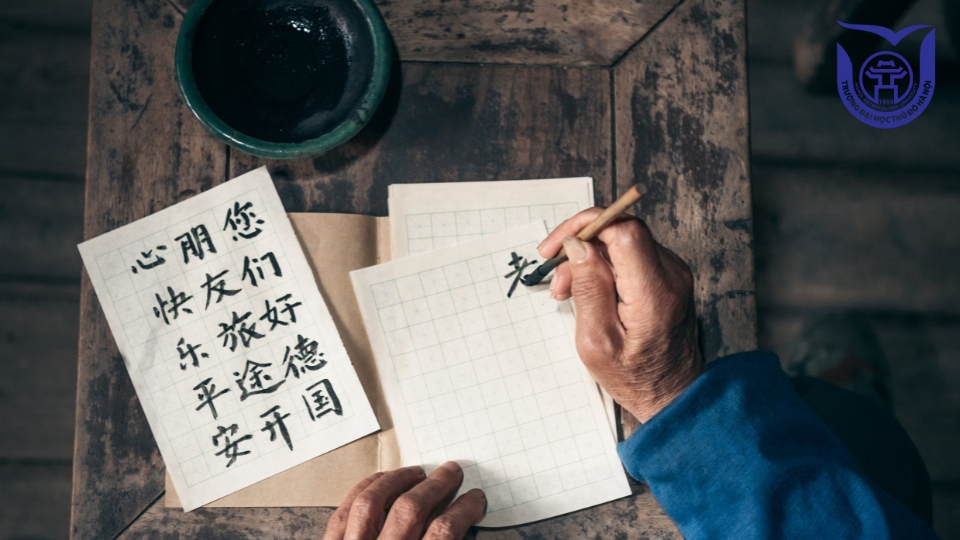 您们好德国
朋友旅途开
心快乐平安
TRƯỜNG ĐẠI HỌC THỦ ĐÔ HÀ NỘI